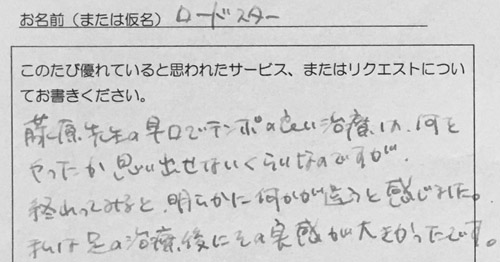 お名前(または仮名) ロードスター
このたび優れていると思われたサービス、またはリクエストについ
てお書きください。
藤原先生の早口でテンポの良い治療は、何を
やったか思い出せないくらいなのですが、
終わってみると、明らかに何かが違うと感じました。
私は足の治療後にその実感が大きかったです。